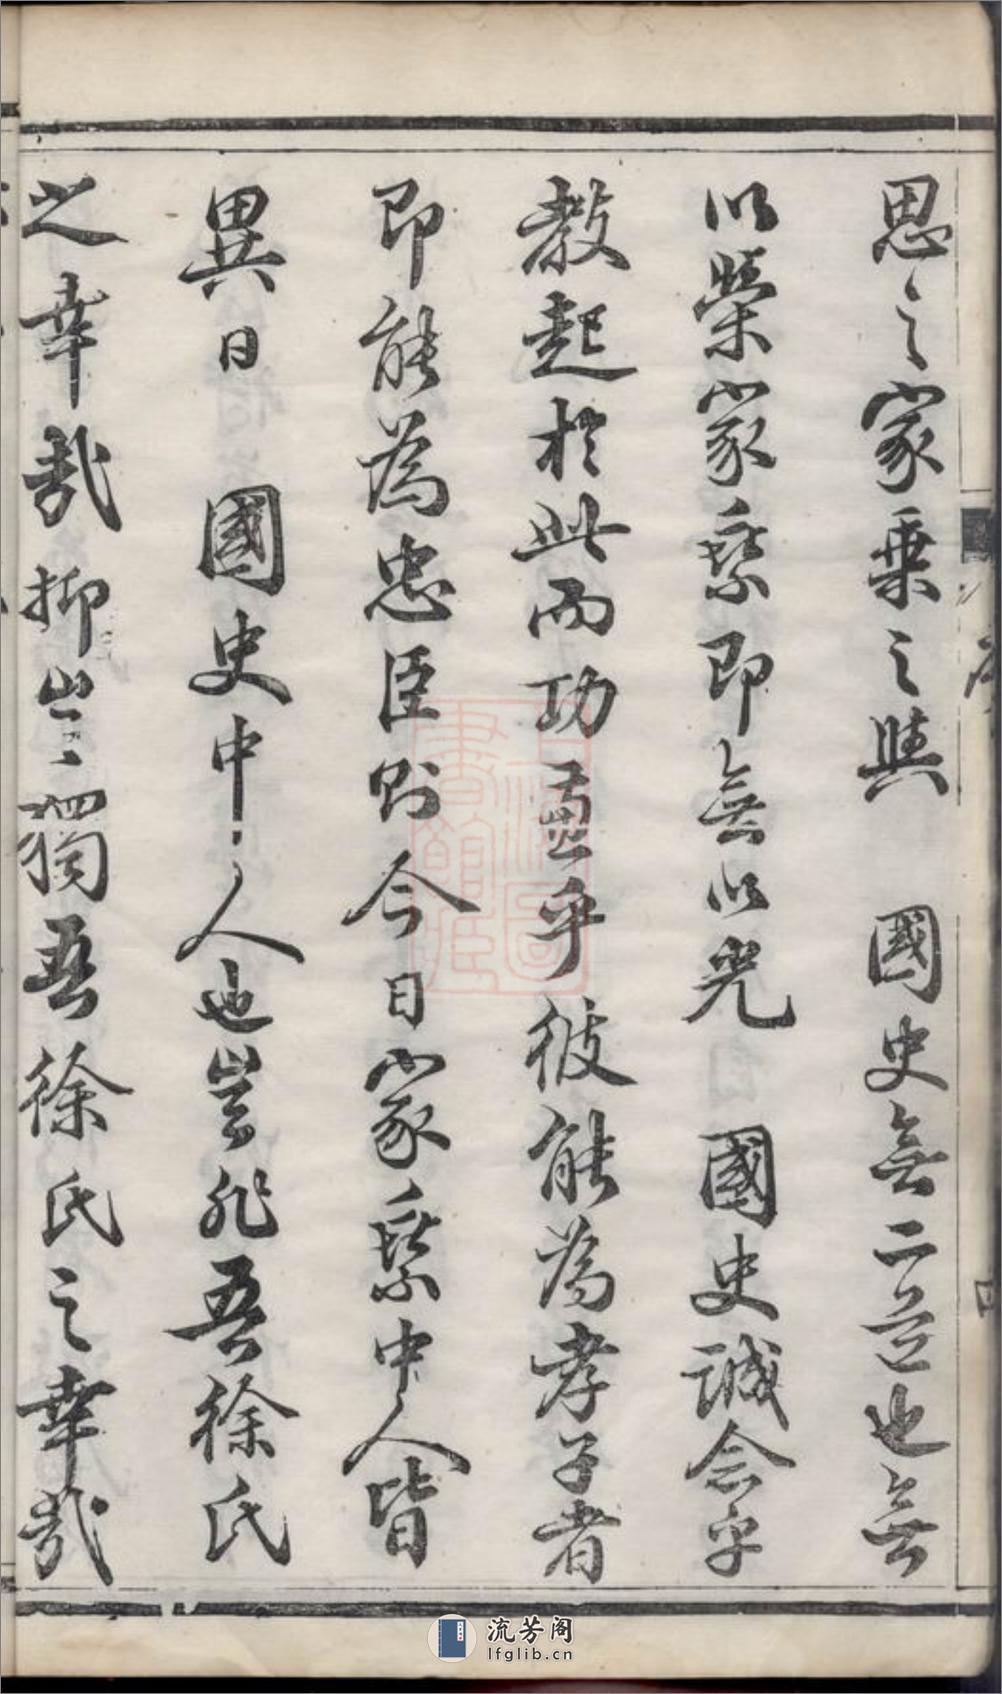 思之家乗之與　國史無二道也無
以榮家乗即無以光　國史誠念乎
教起於此而功盡乎彼能為孝子者
即能為忠臣則今日家乗中人皆
異日　國史中人也豈非吾徐氏
之幸哉抑豈獨吾徐氏之幸哉
流芳阁
lfglib.cn